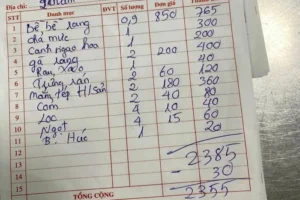 Địa chỉ:
STT Danh mục ĐVT Số lượng Đơn giá Thành tiền
1 Bề bề rang 0,9 850 765
2 chả mực 1 300
3 Canh ngao hoa 1 200
4 gà rang 2 200 400
5 Rau xào 1 40
6 Trứng rán 2 60 120
7 Mắm tép H/Sản 2 180 360
8 Cơm 2 40 80
9 Lọc 4 10 40
10 Ngọt 4 15 60
11 B. Húc 1 20
12 2385
13 - 30
14 2355
15
TỔNG CỘNG